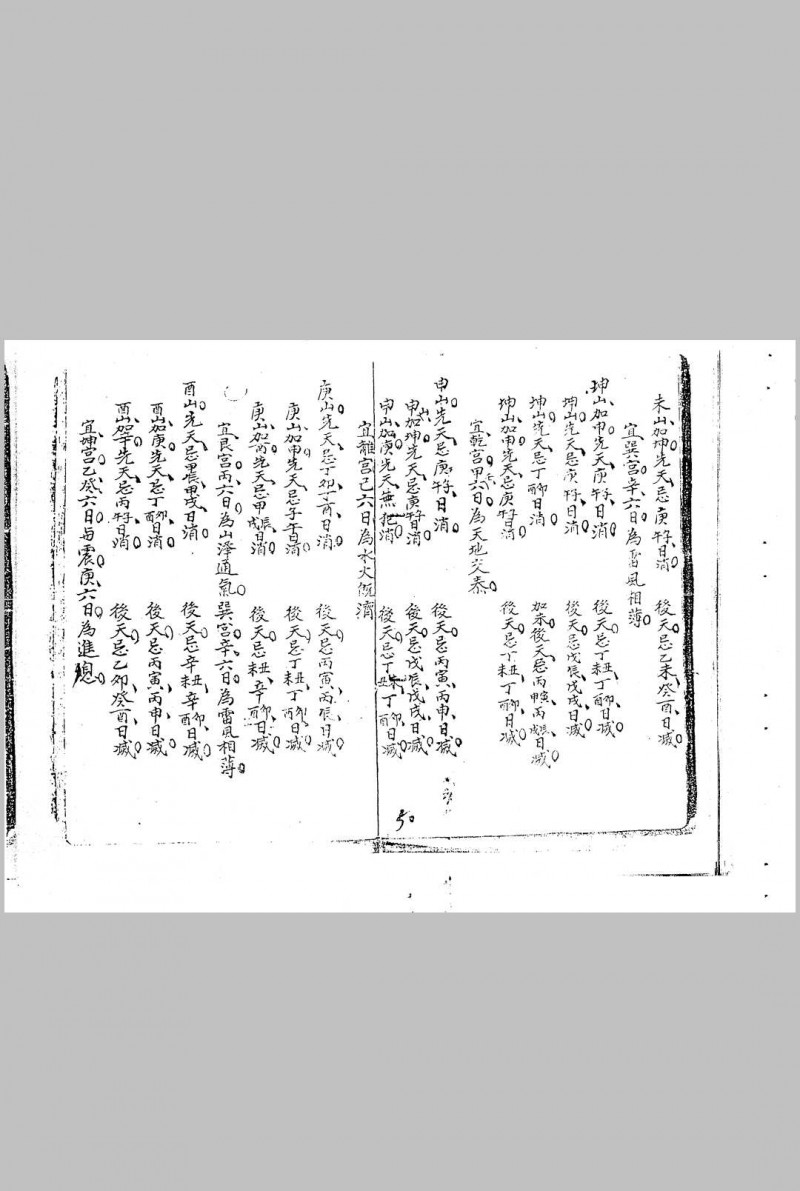 未山加坤先天忌庚子午日消 後天忌乙未癸酉日滅
宜巽宮辛六日為雷風相薄
坤山加申先天庚子午日消 後天忌丁丑未丁卯酉日滅
坤山先天忌庚子午日消 後天忌戊辰戊戌日滅
坤山先天忌丁卯酉日消 加未後天忌丙申寅丙戌辰日滅
坤山加申先天忌庚子午日消 後天忌丁丑未丁卯酉日滅
宜乾宮甲六日為天地交泰
申山先天忌庚子午日消 後天忌丙寅丙申日滅
申加坤先天忌庚子午日消 後天忌戊辰戊戌日滅
申山加庚先天無犯消 後天忌丁丑未丁卯酉日滅
宜離宮己六日為水火既濟
庚山先天忌丁卯丁酉日消 後天忌丙寅丙辰日滅
庚山加申先天忌子午日消 後天忌丁丑未丁卯酉日滅
庚山加酉先天忌甲辰戌日消 後天忌丑未辛卯酉日滅
宜艮宮丙六日為山澤通氣 巽宮辛六日為雷風相薄
酉山先天忌甲辰甲戌日消 後天忌辛丑未辛卯酉日滅
酉山加庚先天忌丁卯酉日消 後天忌丙寅丙申日滅
酉山加辛先天忌丙子午日消 後天忌乙卯癸酉日滅
宜坤宮乙癸六日與震庚六日為進總
50